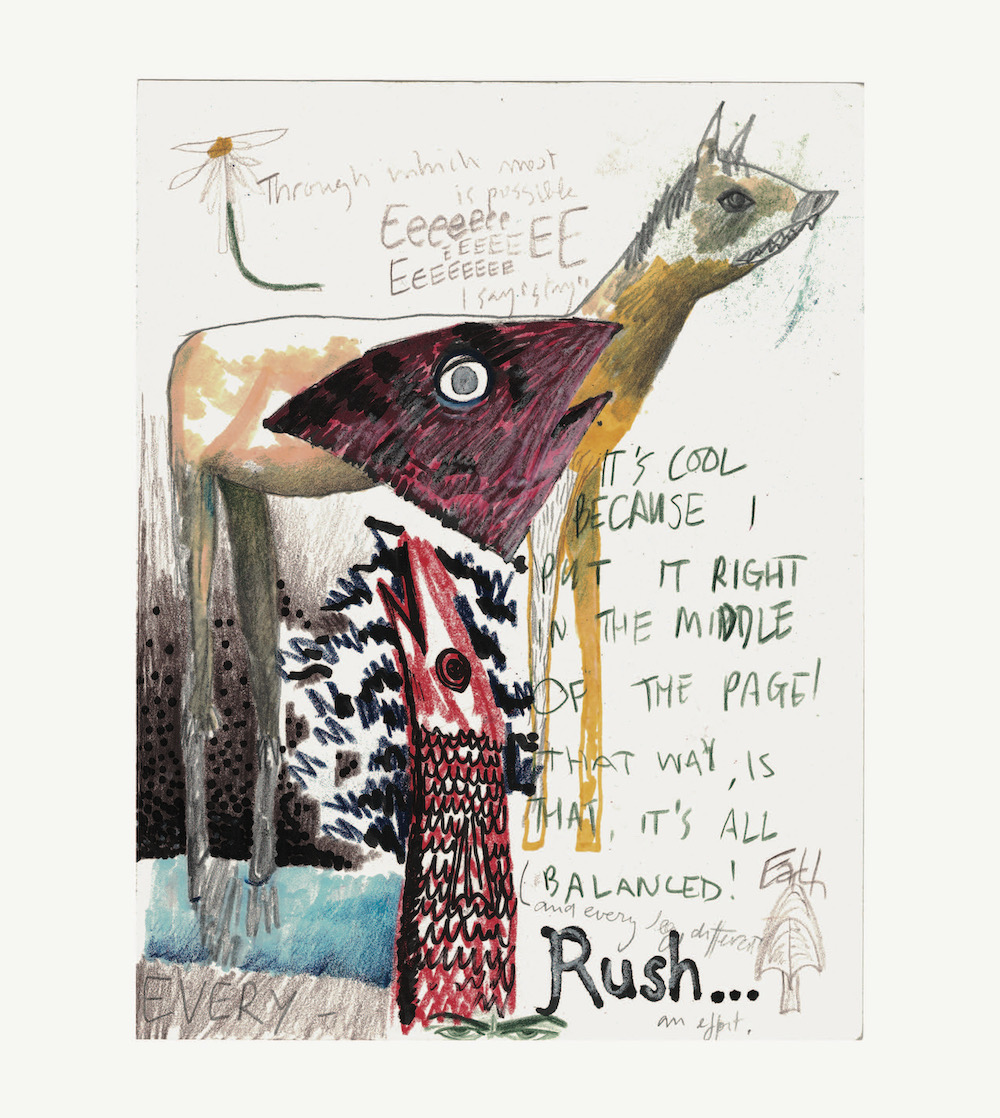 Through which most
is possible
Eeeeeee
EEEEEEE
EEEEEEEE
I say, stay"
IT'S COOL
BECAUSE I
PUT IT RIGHT
IN THE MIDDLE
OF THE PAGE!
THAT WAY, IS
THAT, IT'S ALL
(BALANCED!
Earth
and every leg different
Rush...
an effort.
EVERY -